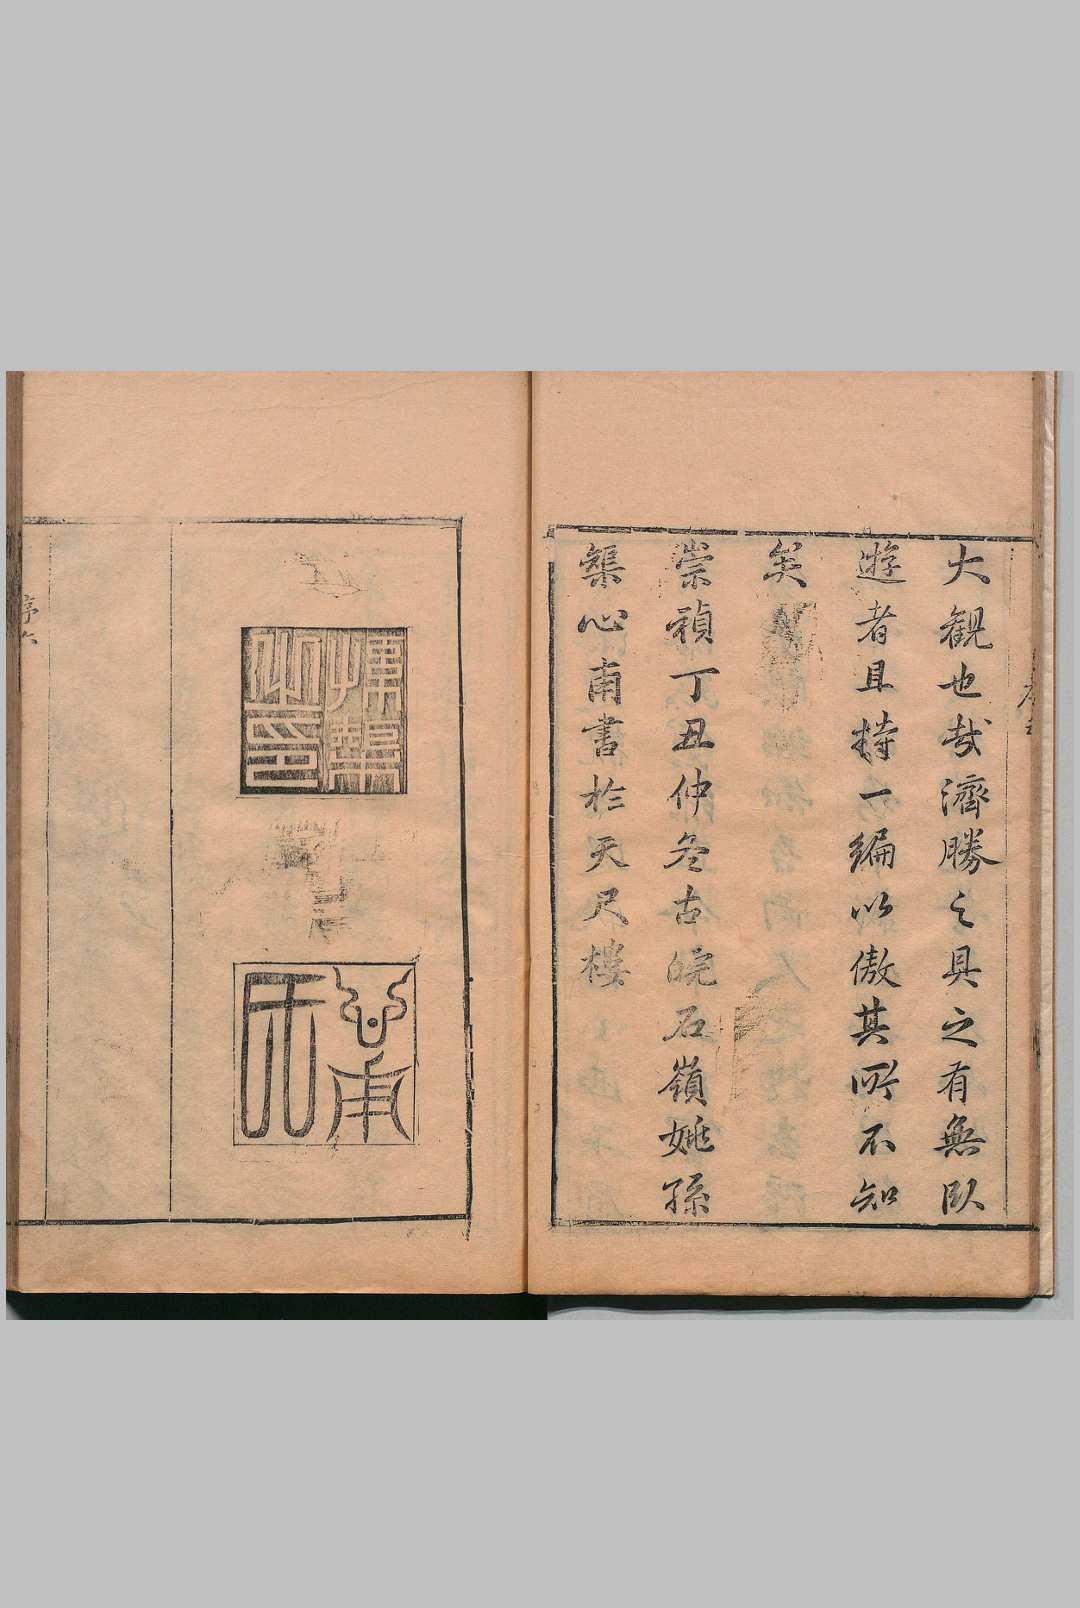 大觀也哉濟勝之具之有無臥
遊者且持一編以傲其所不知
矣
崇禎丁丑仲冬古皖石嶺姚孫
榘心甫書於天尺樓
序六
心甫氏